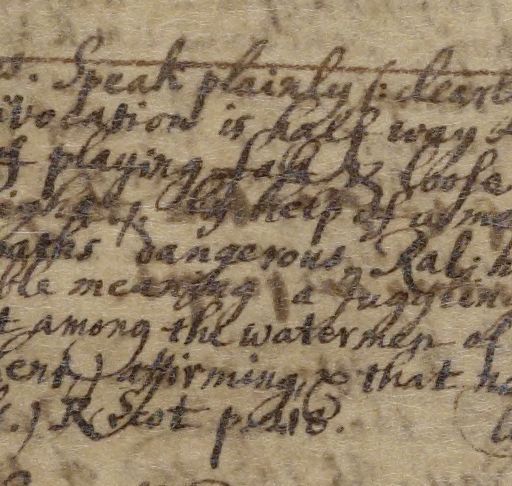 Speak plainly & clear
ivocation is half way
playing fast & loose
by help of
oaths dangerous, Ral:
ble meaning a Juggling
t among the watermen of
affirming, that
R Scot p. 418.